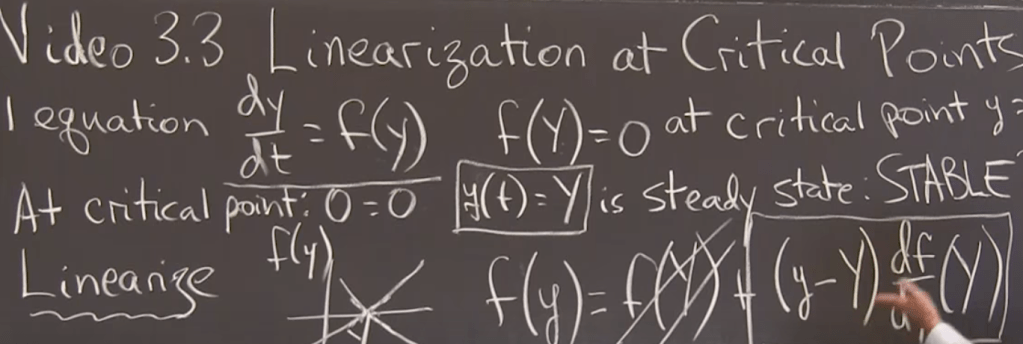 Video 3.3 Linearization at Critical Points
1 equation dy/dt = f(y) f(Y)=0 at critical point y=
At critical point: 0=0 y(t)=Y is steady state: STABLE
Linearize f(y) f(y) = f(Y) + (y-Y) df/d (Y)